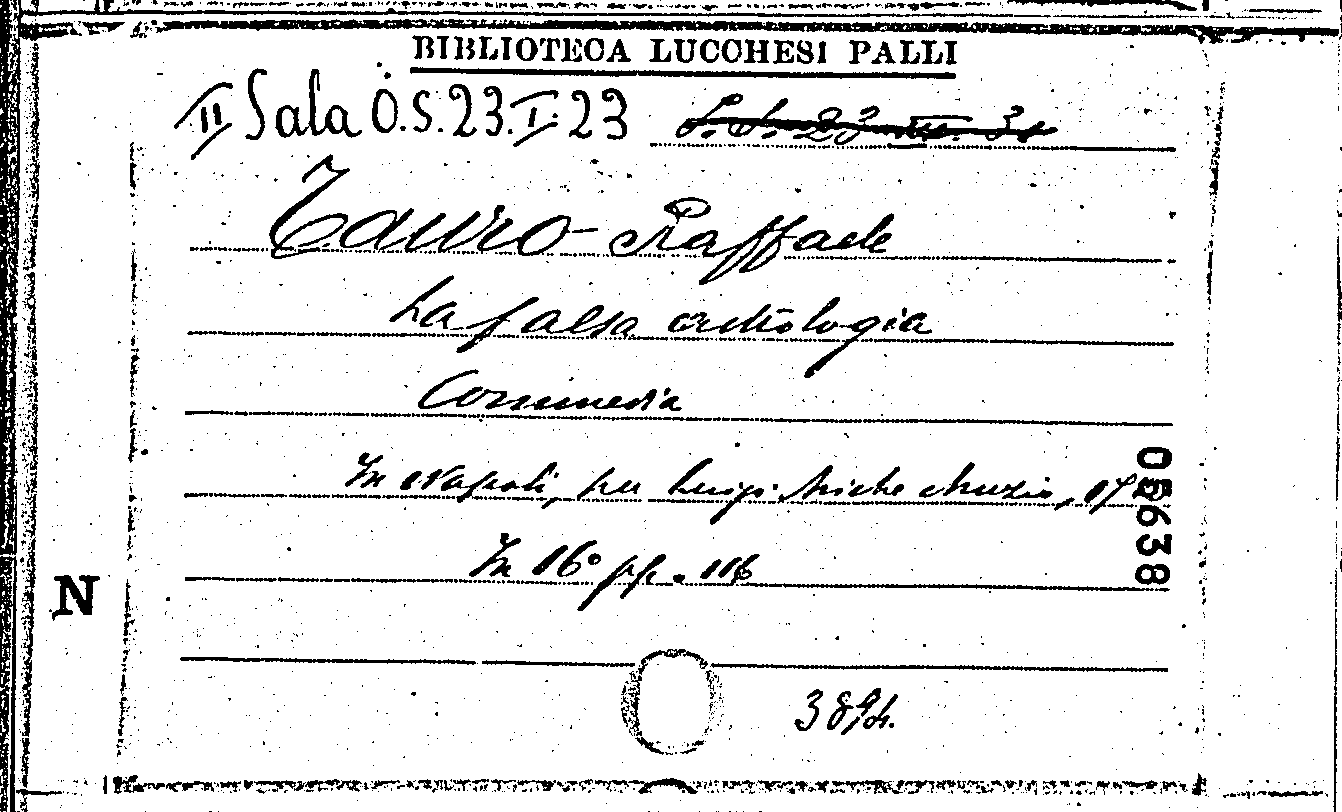 BIBLIOTECA LUCCHESI PALLI
II Sala O.S. 23. I. 23
Tauro Raffaele
La falsa astrologia
Commedia
In Napoli, per Luigi Michele Muzio, 17
In 16° pp. 116
05638
N